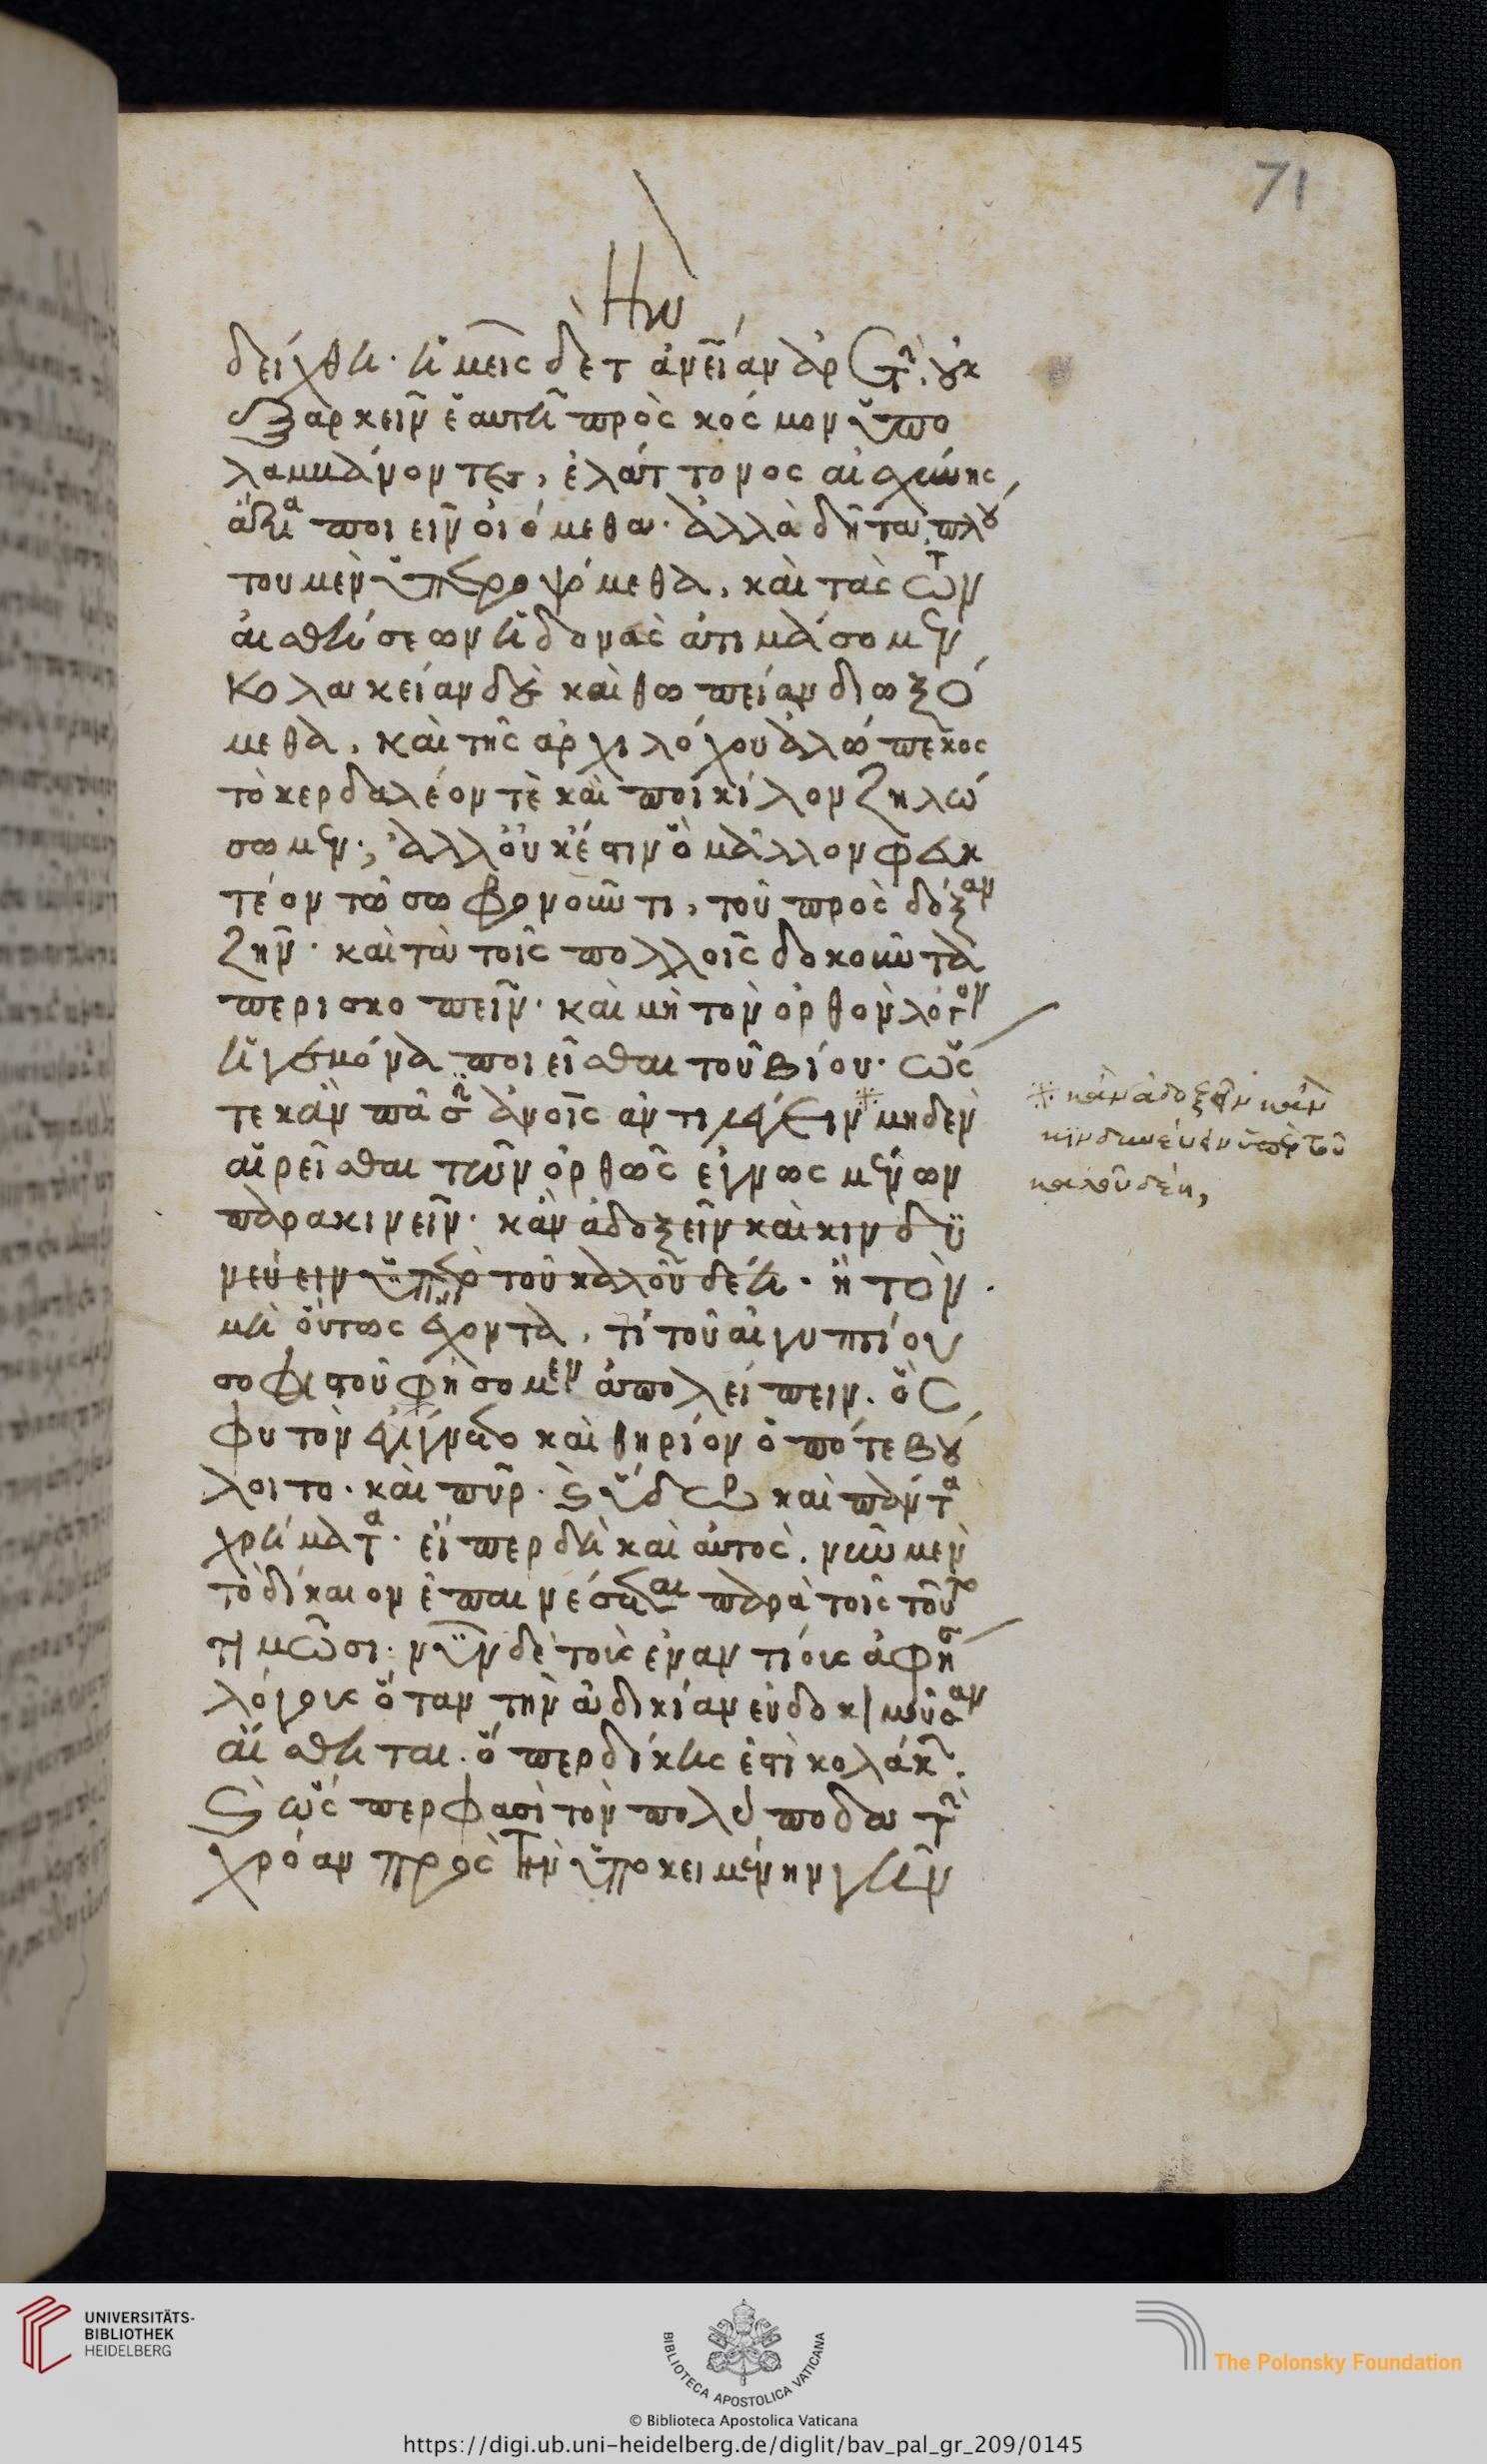 71
δείχθη· ἡμεῖς δὲ τ ἀνεῖαν ἀρετὴν, οὐκ
ἐξαρκεῖν ἑαυτῇ πρὸς κόσμον ὑπο
λαμβάνοντες, ἐλάττονος αἰσχύνης
ἄξια ποιεῖν οἰόμεθα· ἀλλὰ δῆτα πλού
του μὲν ὑπεροψόμεθα, καὶ τὰς τῶν
αἰσθήσεων ἡδονὰς ἀτιμάσομεν,
κολακείαν δὲ καὶ θωπείαν διωξό
μεθα, καὶ τῆς ἀρχιλόχου ἀλώπεκος
τὸ κερδαλέον τὲ καὶ ποικίλον ζηλώ
σωμεν; ἀλλ' οὐκ ἔστιν ὃ μᾶλλον φευκ
τέον τῶ σωφρονοῦντι, τοῦ πρὸς δόξαν
ζῆν· καὶ τὰ τοῖς πολλοῖς δοκοῦντα
περισκοπεῖν· καὶ μὴ τὸν ὀρθὸν λόγον
ἡγεμόνα ποιεῖσθαι τοῦ βίου· ὥς
τε κἂν πᾶσιν ἀνοῖς ἀντιλέγειν※ μηδὲν
αἱρεῖσθαι τῶν ὀρθῶς ἐγνωσμένων
παρακινεῖν· κἂν ἀδοξεῖν καὶ κινδυ
νεύειν ὑπὲρ τοῦ καλοῦ δέῃ· ἢ τὸν
μὴ οὕτως ἔχοντα, τί τοῦ αἰγυπτίου
σοφιστοῦ φήσομεν ἀπολείπειν· ὃς
φυτὸν ἐγίγνετο καὶ θηρίον ὁπότε βού
λοιτο· καὶ πῦρ· καὶ ὕδωρ καὶ πάντα
χρήματα· εἴπερ δὴ καὶ αὐτὸς· νῦν μὲν
τὸ δίκαιον ἐπαινέσεται παρὰ τοῖς τοῦτο
τιμῶσι· νῦν δὲ τοὺς ἐναντίους ἀφήσει
λόγους ὅταν τὴν ἀδικίαν εὐδοκιμοῦσαν
αἴσθηται· ὅπερ δίκης ἐστὶ κολάκων·
καὶ ὥσπερ φασὶ τὸν πολύποδα τὴν
χρόαν πρὸς τὴν ὑποκειμένην γῆν
※ κἂν ἀδοξεῖν κἂν
κινδυνεύειν ὑπὲρ τοῦ
καλοῦ δέη,
UNIVERSITÄTS-
BIBLIOTHEK
HEIDELBERG
BIBLIOTHECA APOSTOLICA VATICANA
The Polonsky Foundation
© Biblioteca Apostolica Vaticana
https://digi.ub.uni-heidelberg.de/diglit/bav_pal_gr_209/0145